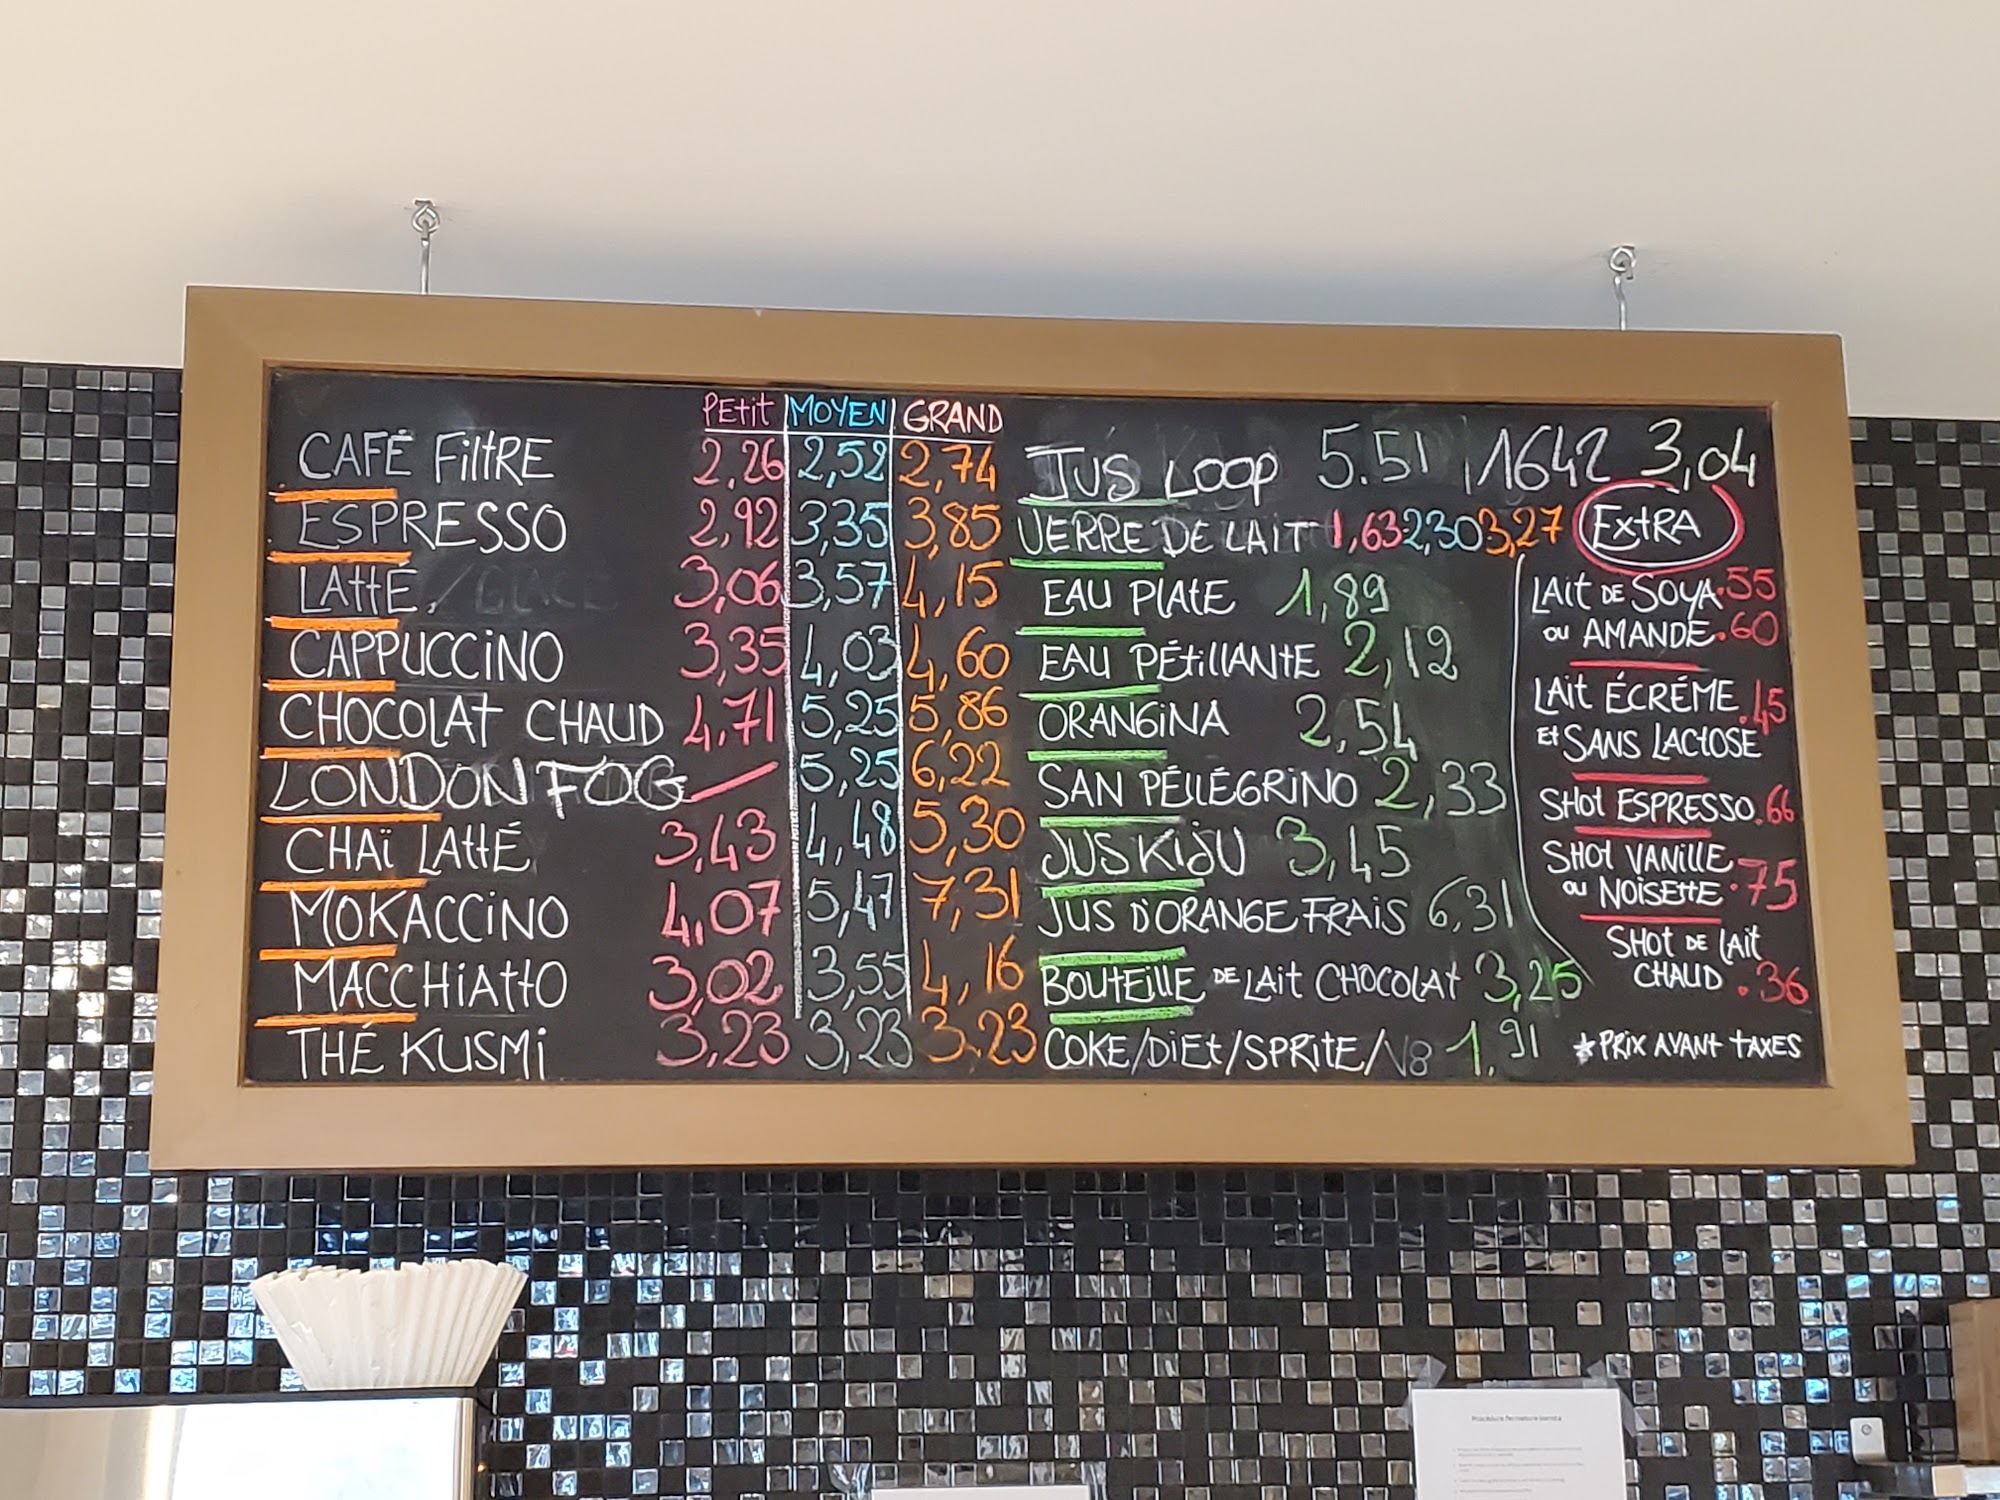 PEtit MOYEN GRAND
CAFÉ FiltRE 2,26 2,52 2,74
ESPRESSO 2,92 3,35 3,85
LAttÉ 3,06 3,57 4,15
CAPPUCCiNO 3,35 4,03 4,60
CHOCOLAt CHAUD 4,71 5,25 5,86
LONDON FOG 5,25 6,22
CHAï LAttÉ 3,43 4,48 5,30
MOKACCiNO 4,07 5,47 7,31
MACCHiAttO 3,02 3,55 4,16
THÉ KUSMi 3,23 3,23 3,23
JUS LOOP 5.51 1642 3,04
VERRE DE LAIT 1,63 2,30 3,27
EAU PLAtE 1,89
EAU PÉtillANtE 2,12
ORANGiNA 2,54
SAN PÉLLÉGRINO 2,33
JUS KiJU 3,45
JUS D'ORANGE FRAiS 6,31
BOUtEillE DE LAit CHOCOLAt 3,25
COKE/DiEt/SPRitE/V8 1,91
ExtRA
LAit DE SOYA .55
ou AMANDE .60
LAit ÉCRÉME .45
Et SANS LACtOSE
SHOt ESPRESSO .66
SHOt VANiLLE
ou NOiSEttE .75
SHOt DE lAit
CHAUD .36
*PRiX AVANt tAXES